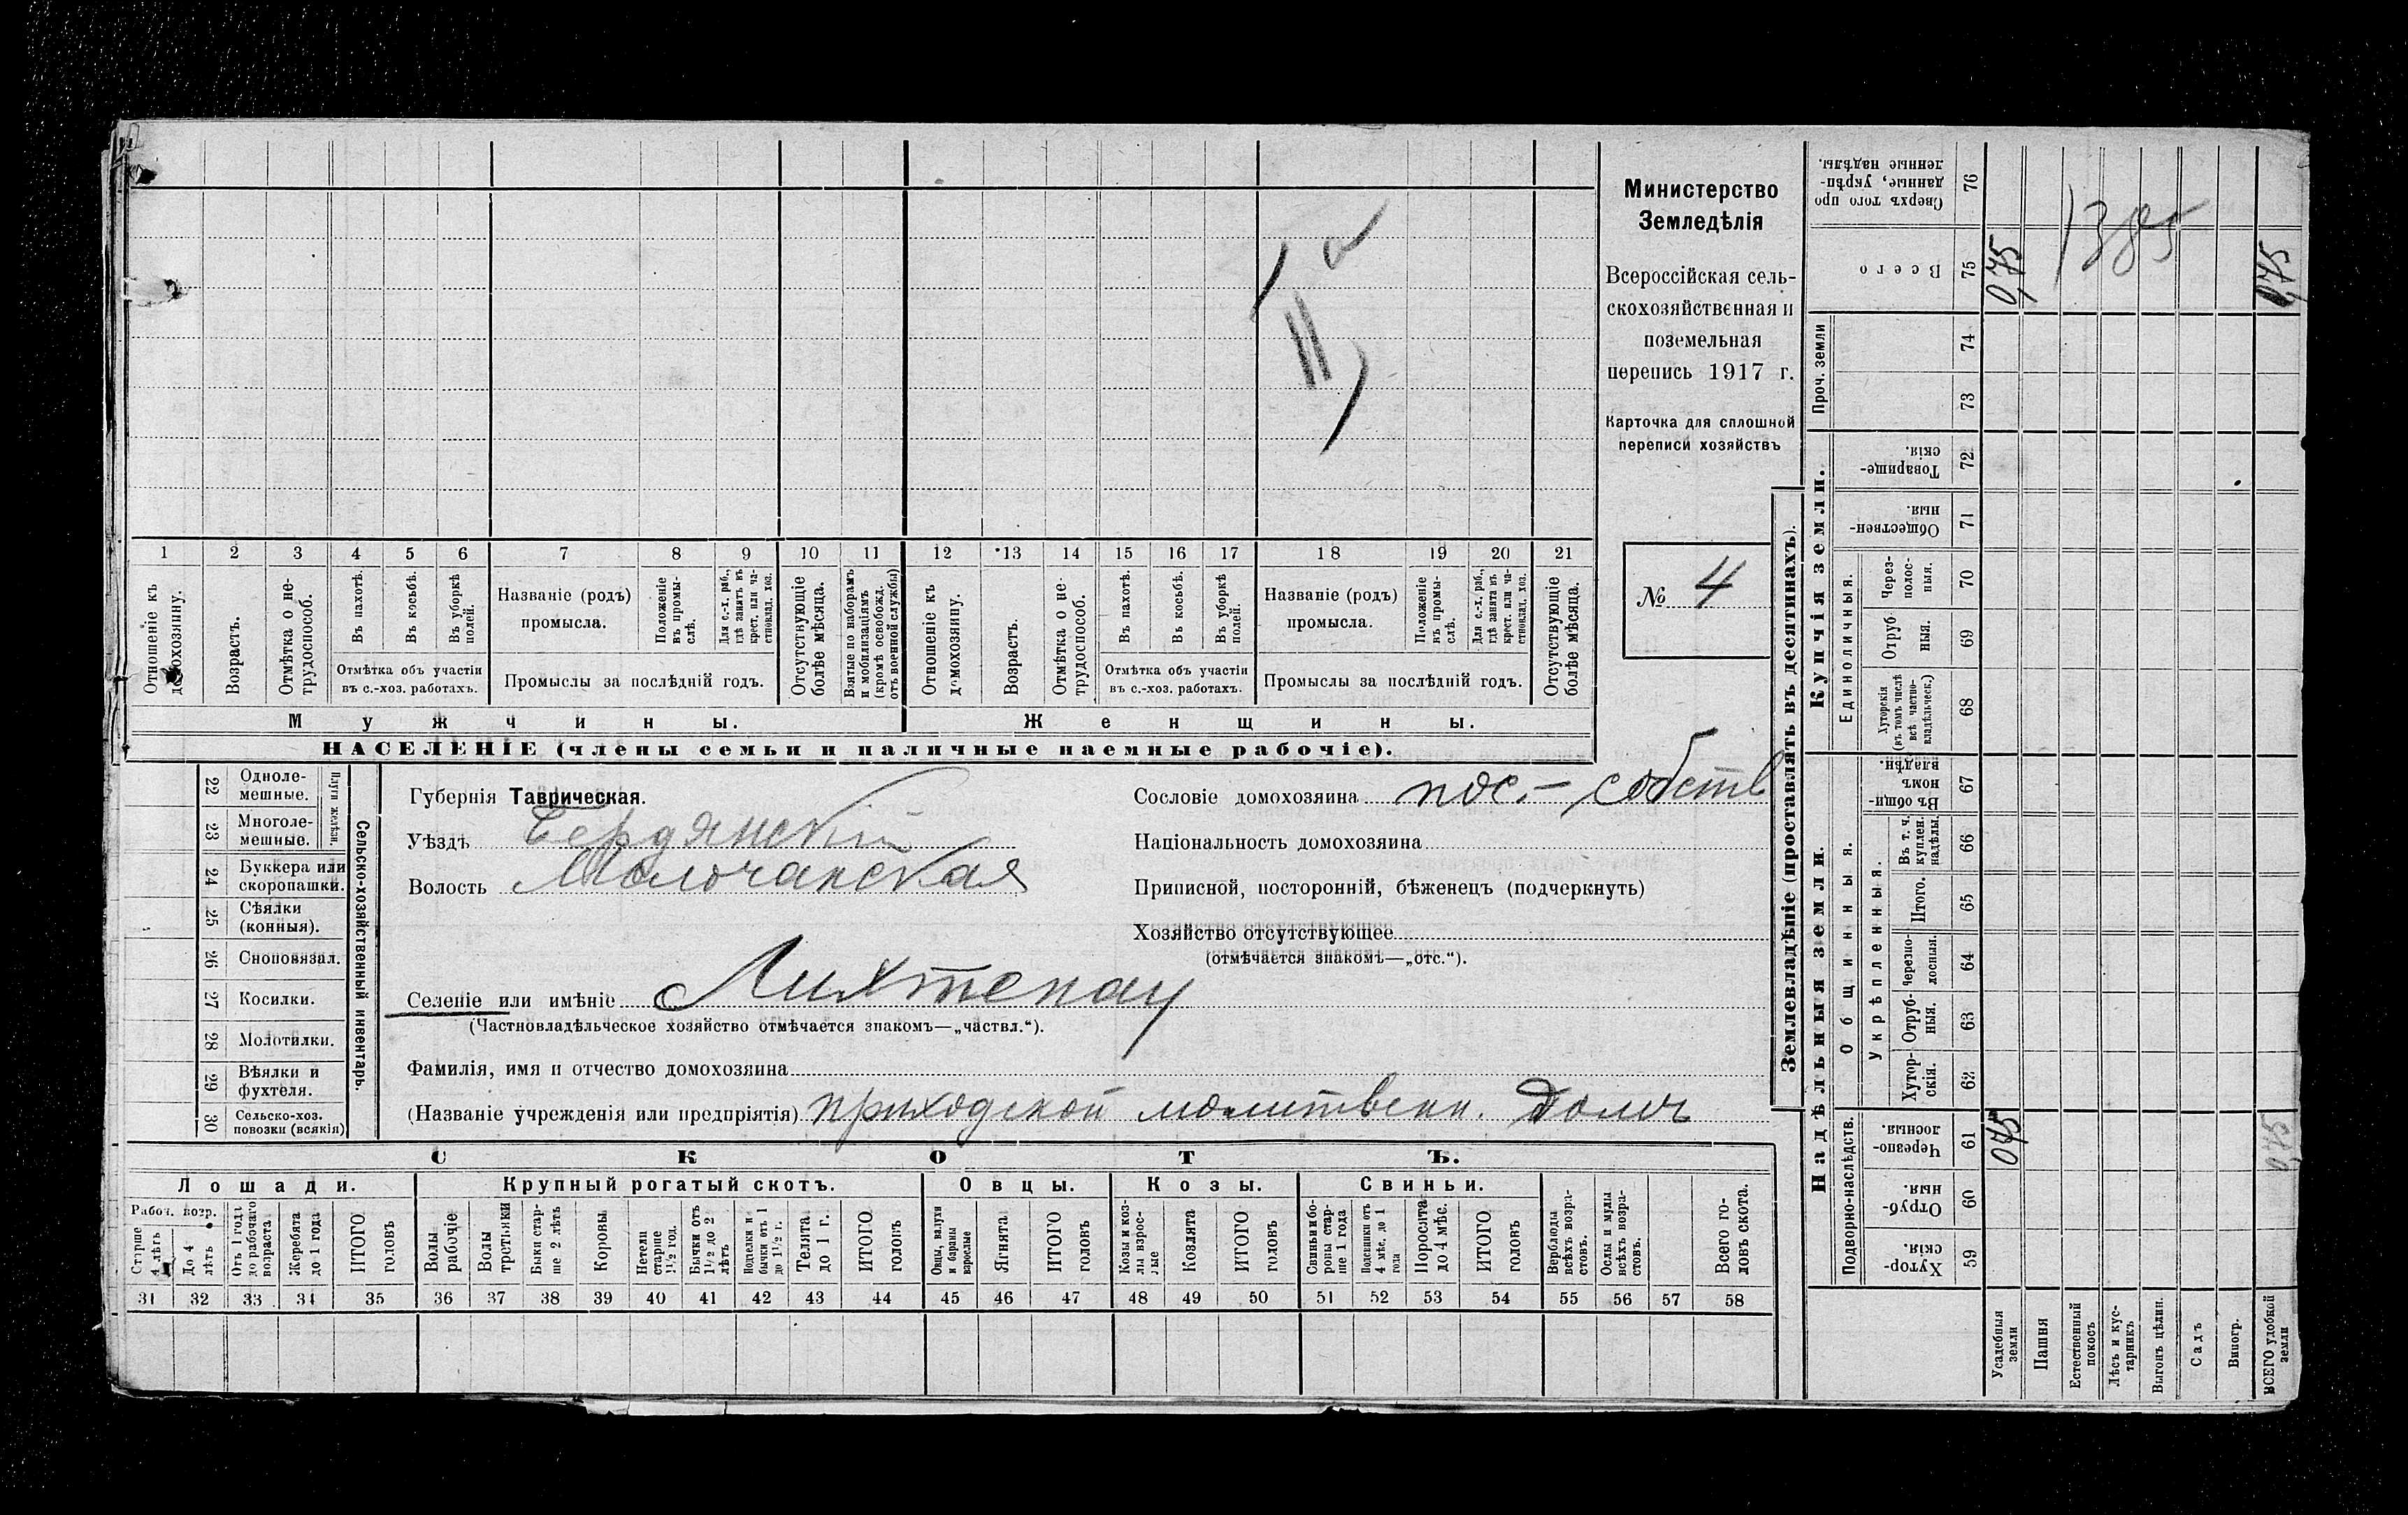 Министерство
Земледѣлія
Всероссійская сель-
скохозяйственная и
поземельная
перепись 1917 г.
Карточка для сплошной
переписи хозяйствъ
№ 4
1 2 3 4 5 6 7 8 9 10 11 12 13 14 15 16 17 18 19 20 21
Отношеніе къ домохозяину.
Возрастъ.
Отмѣтка о не-трудоспособ.
Въ пахотѣ.
Въ косьбѣ.
Въ уборкѣ полей.
Отмѣтка объ участіи
въ с.-хоз. работахъ.
Названіе (родъ)
промысла.
Положеніе въ промы-слѣ.
Для с.-х. раб., гдѣ занятъ въ крест. или ча-стновлад. хоз.
Промыслы за послѣдній годъ.
Отсутствующіе болѣе мѣсяца.
Взятые по наборамъ и мобилизаціямъ (кромѣ освобожд. отъ военной службы)
Отношеніе къ домохозяину.
Возрастъ.
Отмѣтка о не-трудоспособ.
Въ пахотѣ.
Въ косьбѣ.
Въ уборкѣ полей.
Отмѣтка объ участіи
въ с.-хоз. работахъ.
Названіе (родъ)
промысла.
Положеніе въ промы-слѣ.
Для с.-х. раб., гдѣ занята въ крест. или ча-стновлад. хоз.
Промыслы за послѣдній годъ.
Отсутствующіе болѣе мѣсяца.
Мужчины.
Женщины.
НАСЕЛЕНІЕ (члены семьи и наличные наемные рабочіе).
22 Одноле-мешные.
23 Многоле-мешные.
24 Буккера или скоропашки.
25 Сѣялки (конныя).
26 Сноповязал.
27 Косилки.
28 Молотилки.
29 Вѣялки и фухтеля.
30 Сельско-хоз. повозки (всякія)
Сельско-хозяйственный инвентарь.
Губернія Таврическая.
Уѣздъ Бердянскій
Волость Молочанская
Селеніе или имѣніе Лихтенау
(Частновладѣльческое хозяйство отмѣчается знакомъ—„частвл.“).
Фамилія, имя и отчество домохозяина
(Названіе учрежденія или предпріятія) приходской молитвенн. домъ
Сословіе домохозяина пос.- собств
Національность домохозяина
Приписной, посторонній, бѣженецъ (подчеркнуть)
Хозяйство отсутствующее
(отмѣчается знакомъ—„отс.“).
СКОТЪ.
Лошади.
Крупный рогатый скотъ.
Овцы.
Козы.
Свиньи.
Рабоч. возр.
Старше 4 лѣтъ
До 4 лѣтъ
Отъ 1 года до рабочаго возраста
Жеребята до 1 года
ИТОГО головъ
Волы рабочіе
Волы третьяки
Быки стар-ше 2 лѣтъ
Коровы
Нетели старше 1½ год.
Бычки отъ 1½ до 2 лѣтъ
бычки отъ 1 до 1½ г.
Телята до 1 г.
ИТОГО головъ
Овцы, валухи и бараны взрослые
Ягнята
ИТОГО головъ
Козы и коз-лы взрос-лые
Козлята
ИТОГО головъ
Свиньи и бо-ровы стар-ше 1 года
Подсвинки отъ 4 мѣс. до 1 года
Поросята до 4 мѣс.
ИТОГО головъ
Верблюды всѣхъ возра-стовъ.
Ослы и мулы всѣхъ возра-стовъ.
Всего го-ловъ скота.
31 32 33 34 35 36 37 38 39 40 41 42 43 44 45 46 47 48 49 50 51 52 53 54 55 56 57 58
Землевладѣніе (проставлять въ десятинахъ).
Надѣльныя земли.
Купчія земли.
Подворно-наслѣдств.
Общинныя.
Укрѣпленныя.
Единоличныя.
Проч. земли
59 Хутор-скія.
60 Отруб-ныя.
61 Черезпо-лосныя.
62 Хутор-скія.
63 Отруб-ныя.
64 Черезпо-лосныя.
65 Итого.
66 Въ т. ч. куплен. надѣлы.
67 Въ общи-номъ владѣн.
68 Хуторскія (въ томъ числѣ всѣ частно-владѣльческ.)
69 Отруб-ныя.
70 Через-полос-ныя.
71 Обществен-ныя.
72 Товарище-скія.
73
74
75 Всего
76 Сверхъ того про-данные, укрѣп-ленные надѣлы.
Усадебныя земли
Пашня
Естественный покосъ
Лѣсъ и кус-тарникъ
Выгонъ цѣлин.
Садъ
Виногр.
ВСЕГО удобной земли
0,75
0,75
1385
0,75
0,75